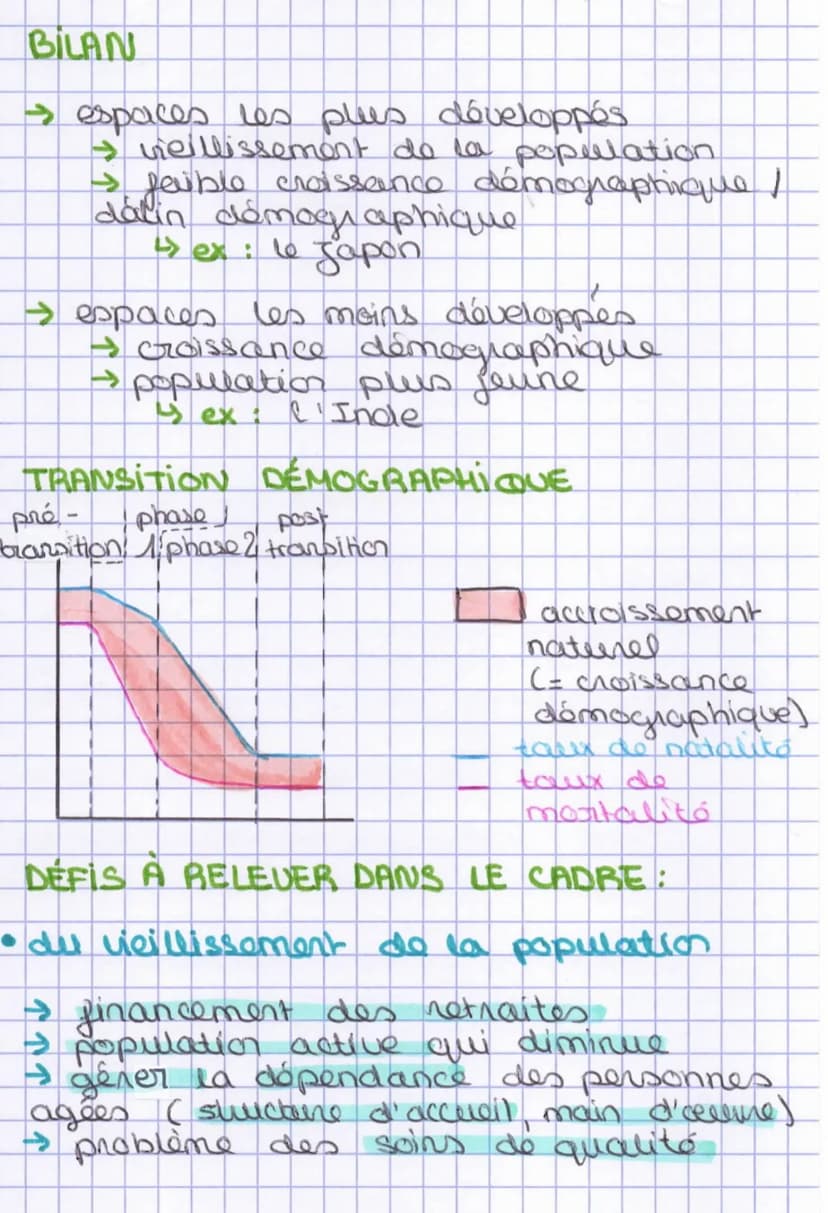 BILAN
→ espaces les plus développés
→ vieillissement de la population
→ faible croissance démographique /
déclin démographique
↳ ex : le Japon
→ espaces les moins développés
→ croissance démographique
→ population plus jeune
↳ ex : l'Inde
TRANSITION DÉMOGRAPHIQUE
pré- phase post
transition 1 phase 2 transition
accroissement
naturel
(= croissance
démographique)
taux de natalité
taux de
mortalité
DÉFIS À RELEVER DANS LE CADRE :
• du vieillissement de la population
→ financement des retraites
→ population active qui diminue
→ gérer la dépendance des personnes
agées (structure d'accueil, main d'œuvre)
→ problème des soins de qualité